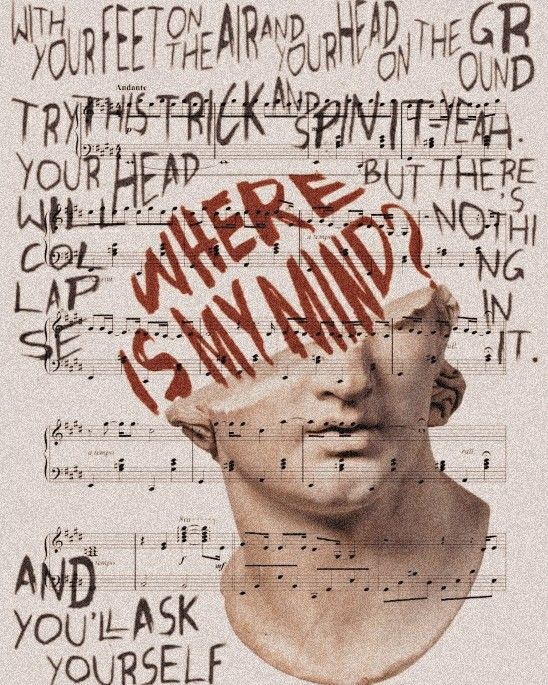 WITH YOUR FEET ON THE AIR AND YOUR HEAD ON THE GROUND
Andante
TRY THIS TRICK AND SPIN IT-YEAH.
YOUR HEAD
WILL
COL
LAP
SE
BUT THERE
'S
NOTHI
NG
IN
IT.
WHERE
IS MY MIND?
a tempo
a tempo
rall.
AND
YOU'LL ASK
YOURSELF